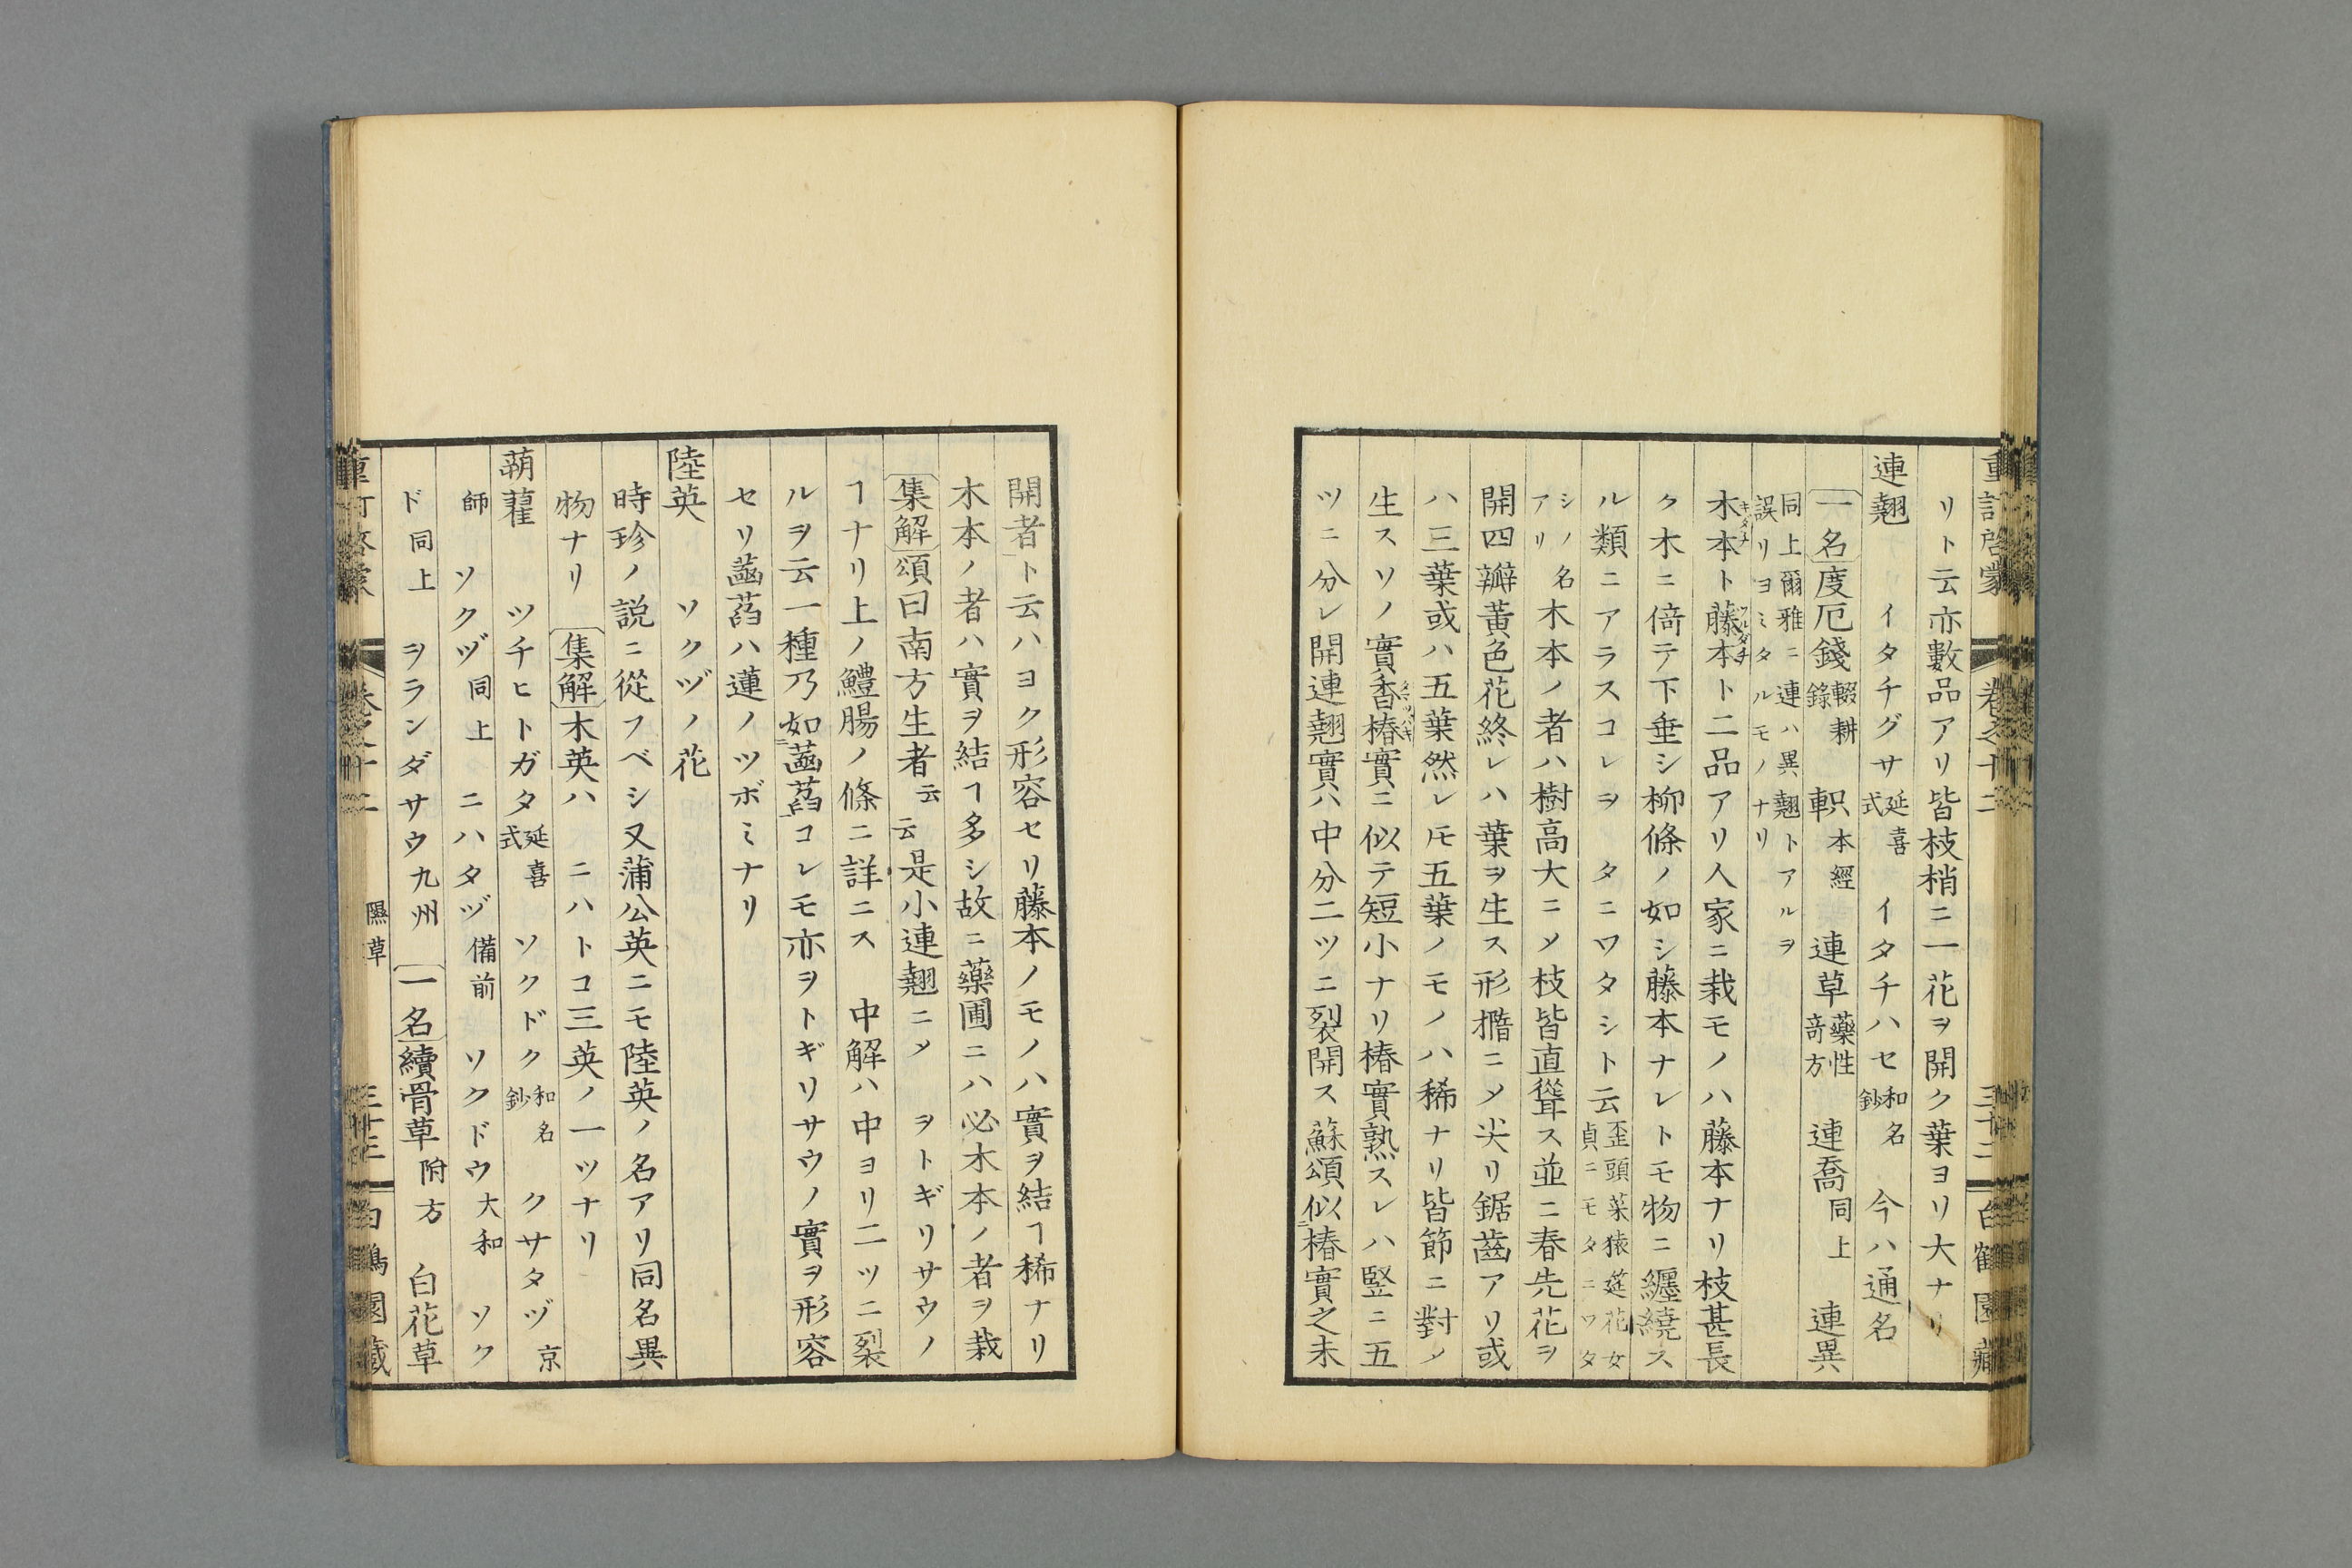 リト云亦數品アリ皆枝梢ニ一花ヲ開ク葉ヨリ大ナリ
連翹 イタチグサ延喜式 イタチハセ和名鈔 今ハ通名
一名度厄錢輟耕錄 軹本經 連草藥性奇方 連喬同上 連異
同上爾雅ニ連ハ異翹トアルヲ誤リヨミタルモノナリ
木本ト藤本ト二品アリ人家ニ栽モノハ藤本ナリ枝甚長
ク木ニ倚テ下垂シ柳條ノ如シ藤本ナレトモ物ニ纒繞ス
ル類ニアラスコレヲ タニワタシト云歪頭菜猿筵花女貞ニモタニワタ
シノ名アリ木本ノ者ハ樹高大ニメ枝皆直聳ス並ニ春先花ヲ
開四瓣黃色花終レハ葉ヲ生ス形橢ニメ尖リ鋸齒アリ或
ハ三葉或ハ五葉然レ𪜈五葉ノモノハ稀ナリ皆節ニ對ノ
生スソノ實香椿實ニ似テ短小ナリ椿實熟スレハ竪ニ五
ツニ分レ開連翹實ハ中分二ツニ裂開ス蘇頌似椿實之未
開者ト云ハヨク形容セリ藤本ノモノハ實ヲ結ヿ稀ナリ
木本ノ者ハ實ヲ結ヿ多シ故ニ藥圃ニハ必木本ノ者ヲ栽
集解頌曰南方生者云云是小連翹ニメ ヲトギリサウノ
ヿナリ上ノ鱧腸ノ條ニ詳ニス 中解ハ中ヨリ二ツニ裂
ルヲ云一種乃如菡萏コレモ亦ヲトギリサウノ實ヲ形容
セリ菡萏ハ蓮ノツボミナリ
陸英 ソクヅノ花
時珍ノ説ニ從フベシ又蒲公英ニモ陸英ノ名アリ同名異
物ナリ 集解木英ハ ニハトコ三英ノ一ツナリ
蒴藋 ツチヒトガタ延喜式 ソクドク和名鈔 クサタヅ京
師 ソクヅ同上 ニハタヅ備前 ソクドウ大和 ソク
ド同上 ヲランダサウ九州 一名續骨草附方 白花草